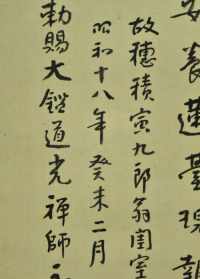 安養蓮臺現
故穗積寅九郎翁闺室
昭和十八年癸未二月
勅賜大鑑道光禅師